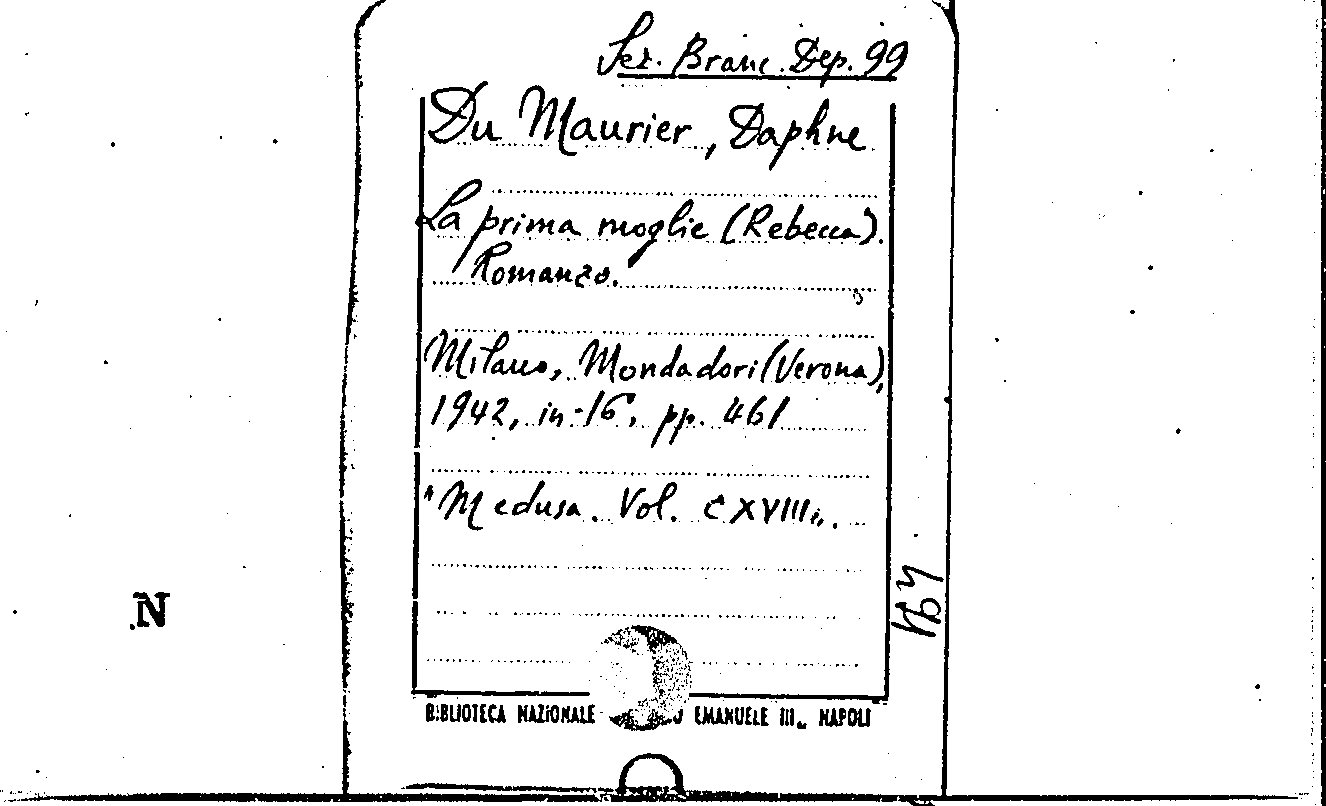 Sez. Branc. Dep. 99
Du Maurier, Daphne
La prima moglie (Rebecca).
Romanzo.
Milano, Mondadori (Verona),
1942, in-16, pp. 461
"Medusa. Vol. CXVIII„.
N
BIBLIOTECA NAZIONALE EMANUELE III - NAPOLI